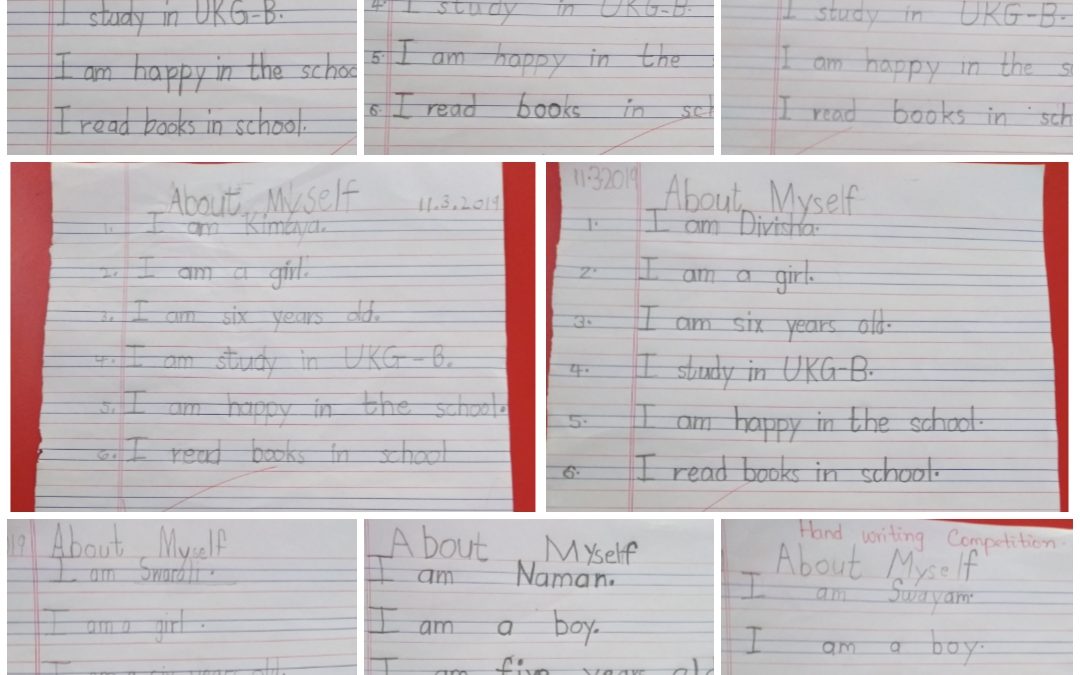 I study in UKG-B.
I am happy in the schoo
I read books in school.
4. I study in UKG-B.
5. I am happy in the
6. I read books in sch
I study in UKG-B.
I am happy in the s
I read books in sch
About Myself 11.3.2019
1. I am Kimaya.
2. I am a girl.
3. I am six years old.
4. I am study in UKG-B.
5. I am happy in the school.
6. I read books in school
11.3.2019 About Myself
1. I am Divisha.
2. I am a girl.
3. I am six years old.
4. I study in UKG-B.
5. I am happy in the school.
6. I read books in school.
19 About Myself
I am Swardli.
I am a girl.
I am a six years old.
About Myself
I am Naman.
I am a boy.
I am five years old
Hand writing Competition.
About Myself
I am Swayam.
I am a boy.